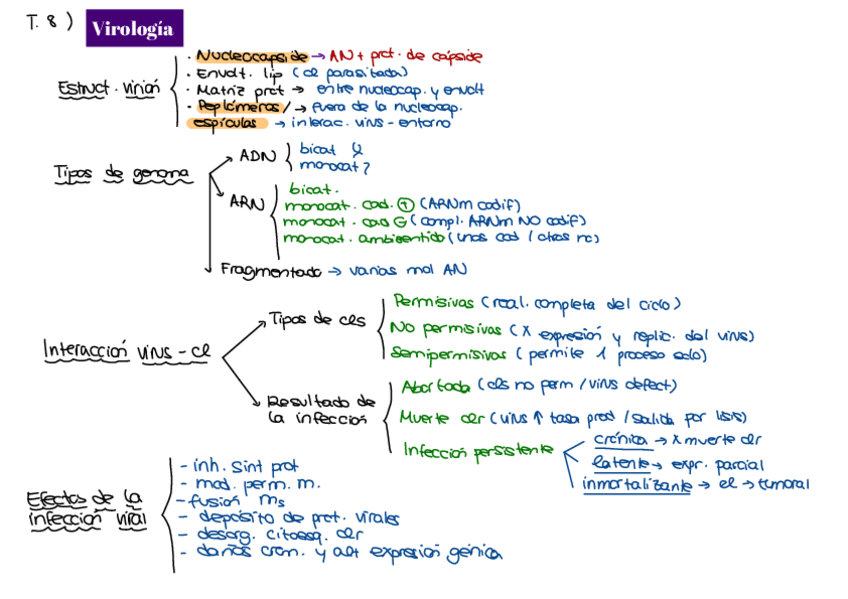 T. 8) Virología
Estruct. virión
· Nucleocapside → AN + prot. de cápside
· Envolt. lip (cl parasitada)
· Matriz prot → entre nucleocap. y envolt
· Peplómeros / → fuera de la nucleocap.
espículas → interac. virus - entorno
Tipos de genoma
ADN
bicat
monocat
ARN
bicat.
monocat. cad. + (ARNm codif)
monocat. cad ⊖ (compl. ARNm NO codif)
monocat. ambisentido (unas cod / otras no)
Fragmentado → varias mol AN
Interacción virus - cl
Tipos de cls
Permisivas (real. completa del ciclo)
No permisivas (X expresión y replic. del virus)
Semipermisivas (permite 1 proceso solo)
Resultado de
la infección
Abortada (cls no perm / virus defect)
Muerte clr (virus ↑ tasa prod / salida por lisis)
Infección persistente
crónica → X muerte clr
latente → expr. parcial
inmortalizante → cl → tumoral
Efectos de la
infección viral
- inh. sint prot
- mod. perm. m.
- fusión ms
- depósito de prot. virales
- desorg. citoesq. clr
- daños crom. y alt expresión génica